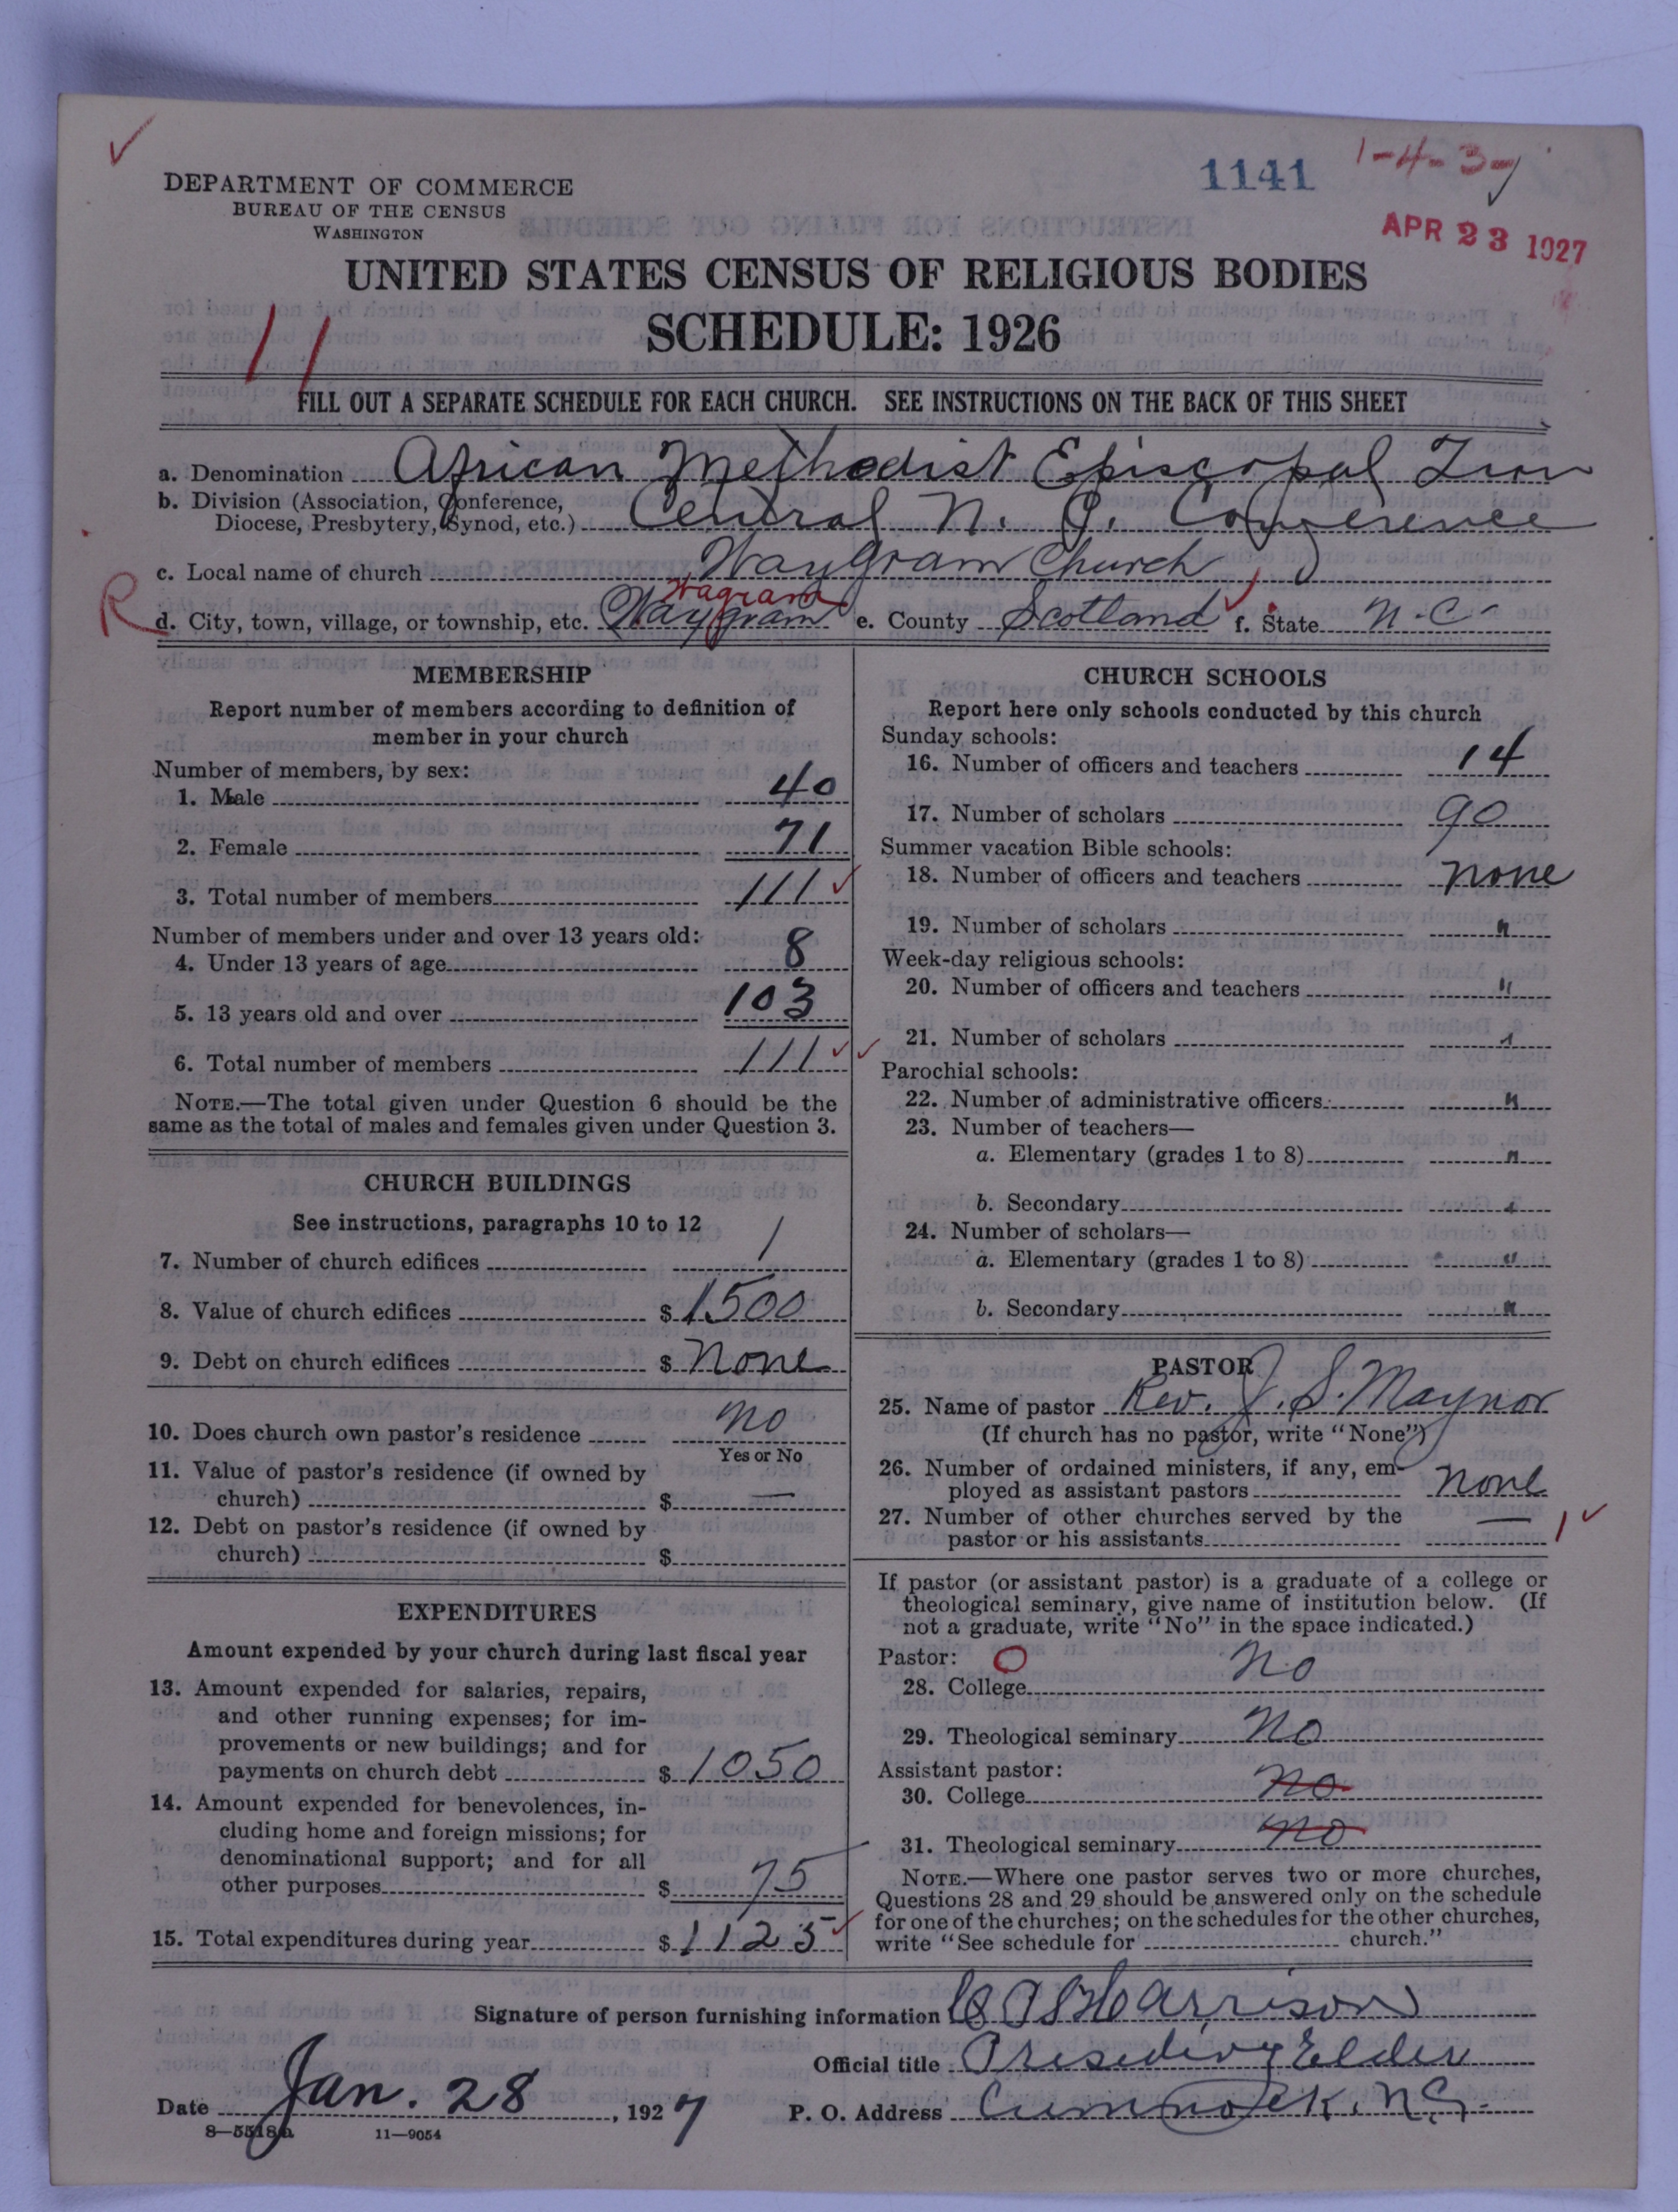 1141
1-4-3-7
DEPARTMENT OF COMMERCE
BUREAU OF THE CENSUS
WASHINGTON
APR 23 1927
UNITED STATES CENSUS OF RELIGIOUS BODIES
SCHEDULE: 1926
11
FILL OUT A SEPARATE SCHEDULE FOR EACH CHURCH. SEE INSTRUCTIONS ON THE BACK OF THIS SHEET
a. Denomination African Methodist Episcopal Zion
b. Division (Association, Conference,
Diocese, Presbytery, Synod, etc.) Central N. C. Conference
c. Local name of church WayGram Church
Wagram
R d. City, town, village, or township, etc. Waygram e. County Scotland f. State N.C.
MEMBERSHIP
Report number of members according to definition of
member in your church
Number of members, by sex:
1. Male 40
2. Female 71
3. Total number of members 111
Number of members under and over 13 years old:
4. Under 13 years of age 8
5. 13 years old and over 103
6. Total number of members 111
NOTE.—The total given under Question 6 should be the
same as the total of males and females given under Question 3.
CHURCH BUILDINGS
See instructions, paragraphs 10 to 12
7. Number of church edifices 1
8. Value of church edifices $ 1500
9. Debt on church edifices $ None
10. Does church own pastor's residence no
Yes or No
11. Value of pastor's residence (if owned by
church) $ —
12. Debt on pastor's residence (if owned by
church) $
EXPENDITURES
Amount expended by your church during last fiscal year
13. Amount expended for salaries, repairs,
and other running expenses; for im-
provements or new buildings; and for
payments on church debt $ 1050
14. Amount expended for benevolences, in-
cluding home and foreign missions; for
denominational support; and for all
other purposes $ 75
15. Total expenditures during year $ 1125
CHURCH SCHOOLS
Report here only schools conducted by this church
Sunday schools:
16. Number of officers and teachers 14
17. Number of scholars 90
Summer vacation Bible schools:
18. Number of officers and teachers none
19. Number of scholars "
Week-day religious schools:
20. Number of officers and teachers "
21. Number of scholars "
Parochial schools:
22. Number of administrative officers "
23. Number of teachers—
a. Elementary (grades 1 to 8) "
b. Secondary "
24. Number of scholars—
a. Elementary (grades 1 to 8) "
b. Secondary "
PASTOR
25. Name of pastor Rev. J. S. Maynor
(If church has no pastor, write "None")
26. Number of ordained ministers, if any, em-
ployed as assistant pastors none
27. Number of other churches served by the
pastor or his assistants — 1
If pastor (or assistant pastor) is a graduate of a college or
theological seminary, give name of institution below. (If
not a graduate, write "No" in the space indicated.)
Pastor: O
28. College no
29. Theological seminary no
Assistant pastor:
30. College no
31. Theological seminary no
NOTE.—Where one pastor serves two or more churches,
Questions 28 and 29 should be answered only on the schedule
for one of the churches; on the schedules for the other churches,
write "See schedule for church."
Signature of person furnishing information Harrison
Official title Presiding Elder
Date Jan. 28, 1927 P. O. Address Cumnock, N.C.
8—5518a 11—9054